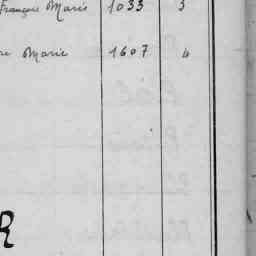 François Marie 1033 3
re Marie 1607 4
R